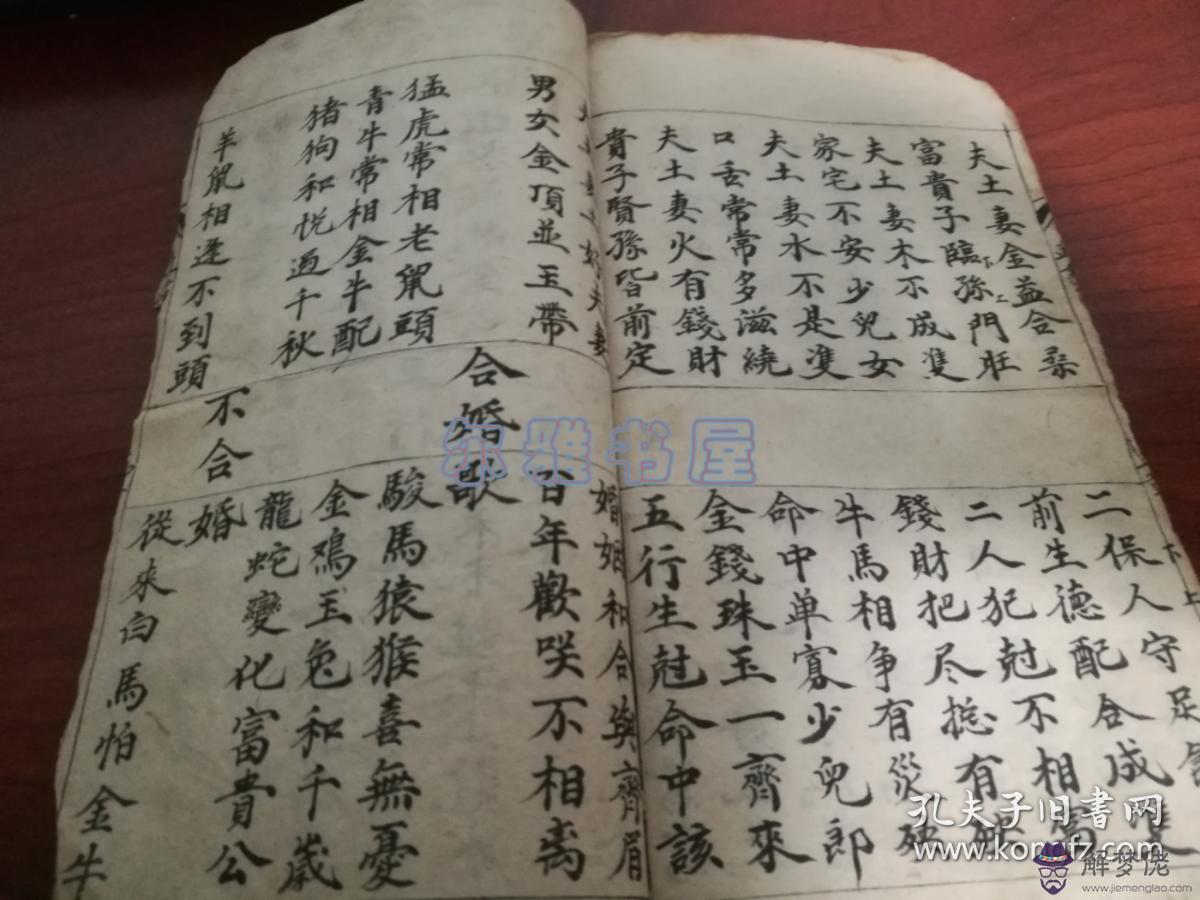 夫土妻金益合
富貴子臨孫門旺
下
上
夫土妻木不成隻
家宅不安少兒女
夫土妻水不是隻
口舌常常多滋繞
夫土妻火有錢財
貴子賢孫皆前定
下
上
二保人守足
前生德配合成隻
二人犯尅不相
錢財把尽捴有
牛馬相争有災殃
命中单寡少兒郎
金錢珠玉一齊來
五行生尅命中該
夫妻
婚姻和合與齊眉
男女金頂並玉帶
百年歡咲不相离
合婚歌
猛虎常相老鼠頭
駿馬猿猴喜無憂
青牛常相金牛配
金鳮玉兔和千歲
猪狗和悦過千秋
龍蛇變化富貴公
不合婚
羊鼠相逢不到頭
從來白馬怕金牛
尔雅书屋
孔夫子旧书网
www.kongfz.com
解梦佬
www.jiemenglao.com